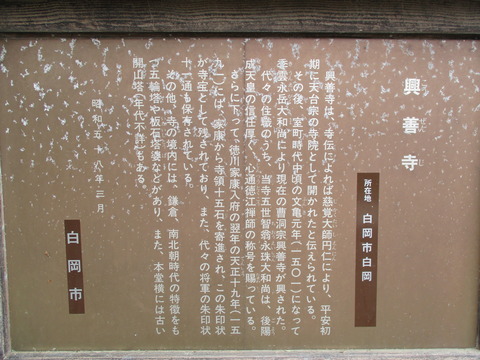 興善寺
こうぜんじ
所在地 白岡市白岡
興善寺は、寺伝によれば慈覚大師円仁により、平安初
期に天台宗の寺院として開かれたと伝えられている。
その後、室町時代中頃の文亀元年(一五〇一)になって
季雲永岳大和尚により現在の曹洞宗興善寺が興された。
代々の住職のうち、当寺五世智翁永珠大和尚は、後陽
成天皇の信任厚く、心通徳江禅師の称号を賜っている。
さらに下って、徳川家康入府の翌年の天正十九年(一五
九一)には、家康から寺領十五石を寄進され、この朱印状
が寺宝として残されており、また、代々の将軍の朱印状
十一通も保存されている。
その他、寺の境内には、鎌倉、南北朝時代の特徴をも
つ五輪塔や板石塔婆などがあり、また、本堂横には古い
開山塔(年代不詳)もある。
昭和五十八年三月
白岡市